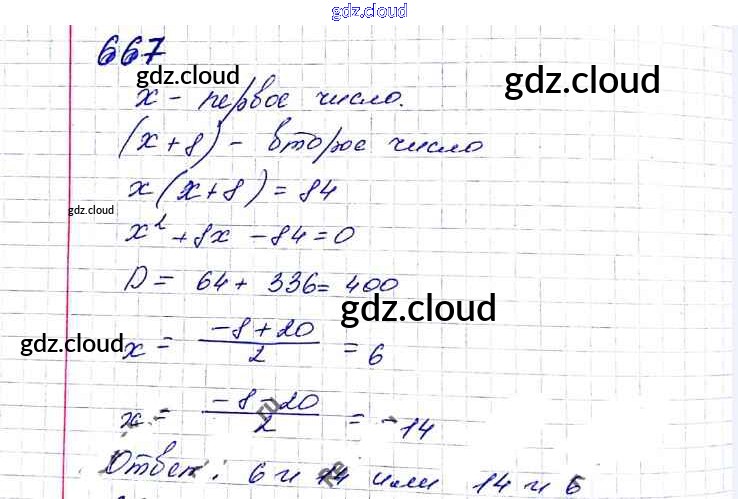 gdz.cloud
667
gdz.cloud
gdz.cloud
x - первое число.
(x+8) - второе число
x(x+8) = 84
gdz.cloud
x² + 8x - 84 = 0
D = 64 + 336 = 400
gdz.cloud
gdz.cloud
x = (-8+20)/2 = 6
x = (-8-20)/2 = -14
Ответ: 6 и 14 или 14 и 6